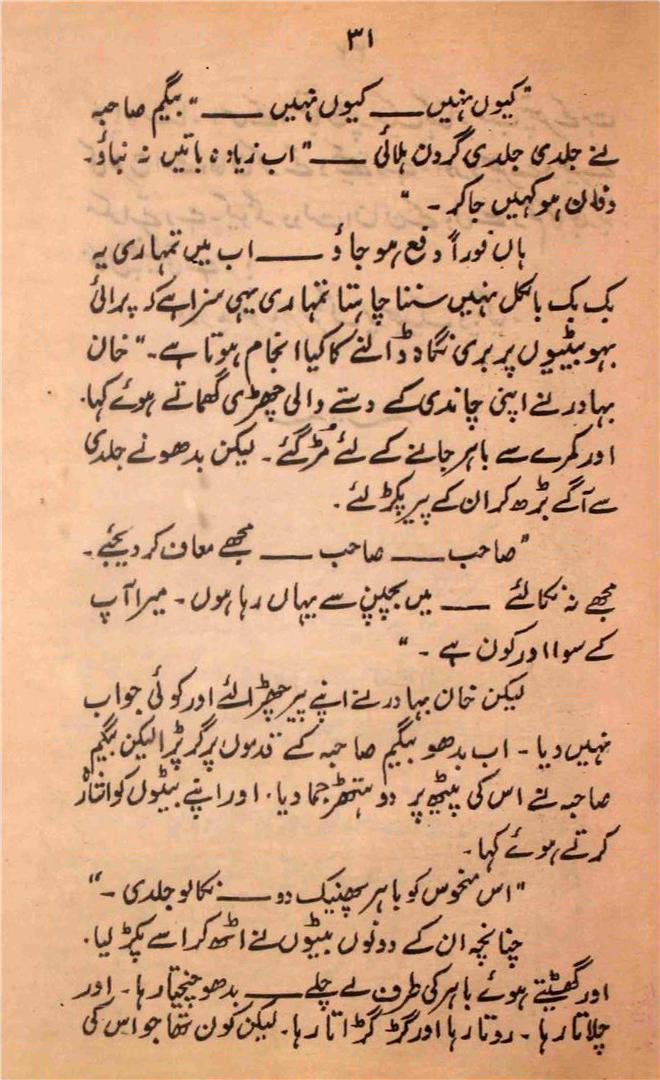 ۳۱
"کیوں نہیں ـــــ کیوں نہیں ـــــ" بیگم صاحبہ
نے جلدی جلدی گردن ہلائی ـــــ "اب زیادہ باتیں نہ بناؤ۔
دفان ہو کہیں جا کر۔"
ہاں فوراً دفع ہو جاؤ ـــــ اب میں تمہاری یہ
بک بک بالکل نہیں سننا چاہتا تمہاری یہی سزا ہے کہ پرائی
بہو بیٹیوں پر بری نگاہ ڈالنے کا کیا انجام ہوتا ہے۔" خان
بہادر نے اپنی چاندی کے دستے والی چھڑی گھماتے ہوئے کہا۔
اور کمرے سے باہر جانے کے لئے مُڑ گئے۔ لیکن بدھو نے جلدی
سے آگے بڑھ کر ان کے پیر پکڑ لئے۔
"صاحب ـــــ صاحب ـــــ مجھے معاف کر دیجئے۔
مجھے نہ نکالئے ـــــ میں بچپن سے یہاں رہا ہوں۔ میرا آپ
کے سوا اور کون ہے۔"
لیکن خان بہادر نے اپنے پیر چھڑا لئے اور کوئی جواب
نہیں دیا۔ اب بدھو بیگم صاحبہ کے قدموں پر گر پڑا لیکن بیگم
صاحبہ نے اس کی پیٹھ پر دو ہتھڑ جما دیا۔ اور اپنے بیٹوں کو اشارہ
کرتے ہوئے کہا۔
"اس منحوس کو باہر پھینک دو ـــــ نکالو جلدی۔"
چنانچہ ان کے دونوں بیٹوں نے اٹھ کر اسے پکڑ لیا۔
اور گھسیٹتے ہوئے باہر کی طرف لے چلے ـــــ بدھو چیختا رہا۔ اور
چلاتا رہا۔ روتا رہا اور گڑ گڑاتا رہا۔ لیکن کون تھا جو اس کی